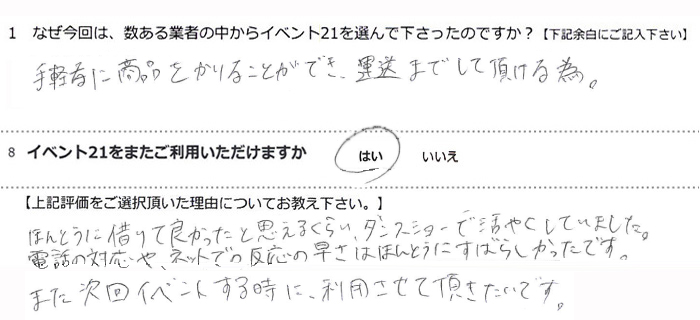 1 なぜ今回は、数ある業者の中からイベント21を選んで下さったのですか?【下記余白にご記入下さい】
手軽るに商品をかりることができ、運送までして頂ける為。
8 イベント21をまたご利用いただけますか はい いいえ
【上記評価をご選択頂いた理由についてお教え下さい。】
ほんとうに借りて良かったと思えるくらい、ダンスショーで活やくしていました。
電話の対応や、ネットでの反応の早さはほんとうにすばらしかったです。
また次回イベントする時に、利用させて頂きたいです。